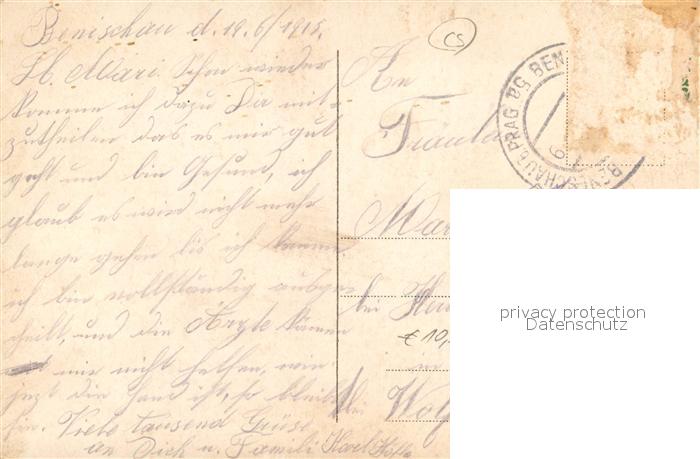 Benischau d. 19.6/1915.
Lb. Mari. Schon wieder
komme ich dazu Dir mit-
zutheilen das es mir gut
geht und bin Gesund, ich
glaub es wird nicht mehr
lange gehen bis ich
ich bin vollständig ausge-
heilt, und die Ärzte können
mir nicht helfen, wie
jezt die Hand ist, so bleibt
sie. Viele tausend Grüse
an Dich u. Famili Karl
CS
An
Fräulein
Mar
bei
€ 10,
in
Wolf
bei
BENESCHAU B. PRAG
BEN
privacy protection
Datenschutz